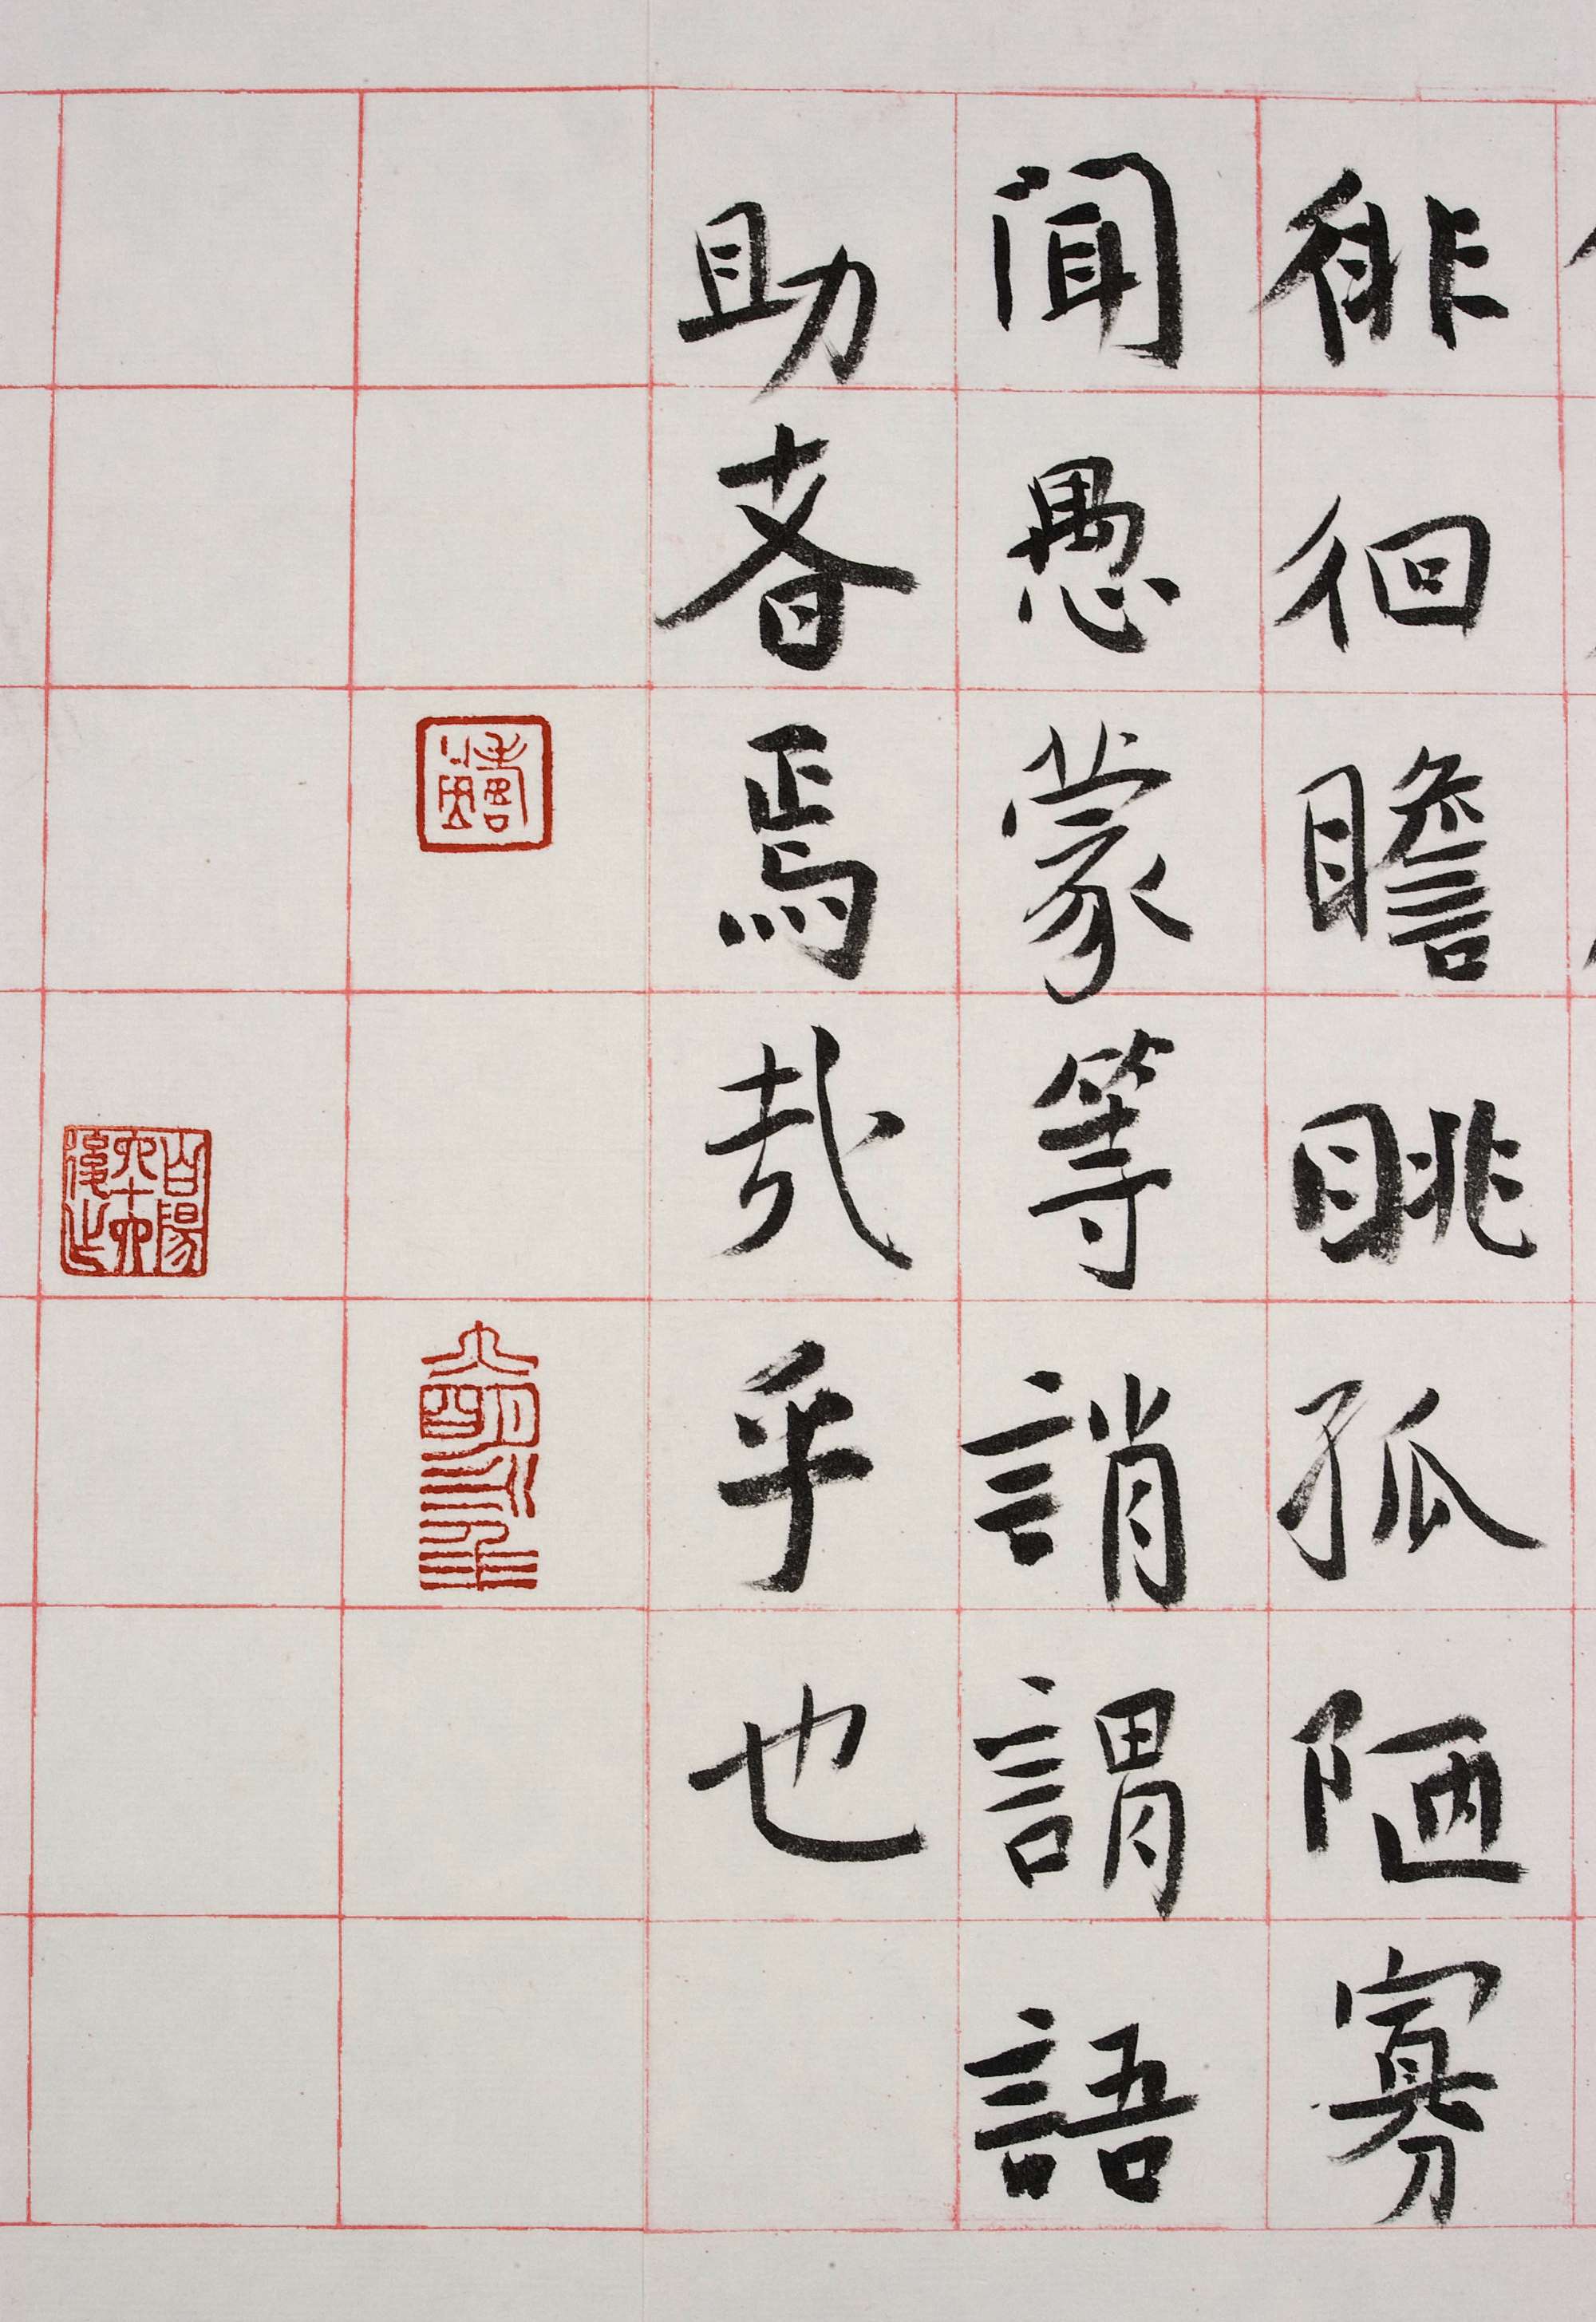 徘徊瞻眺孤陋寡
聞愚蒙等誚謂語
助者焉哉乎也